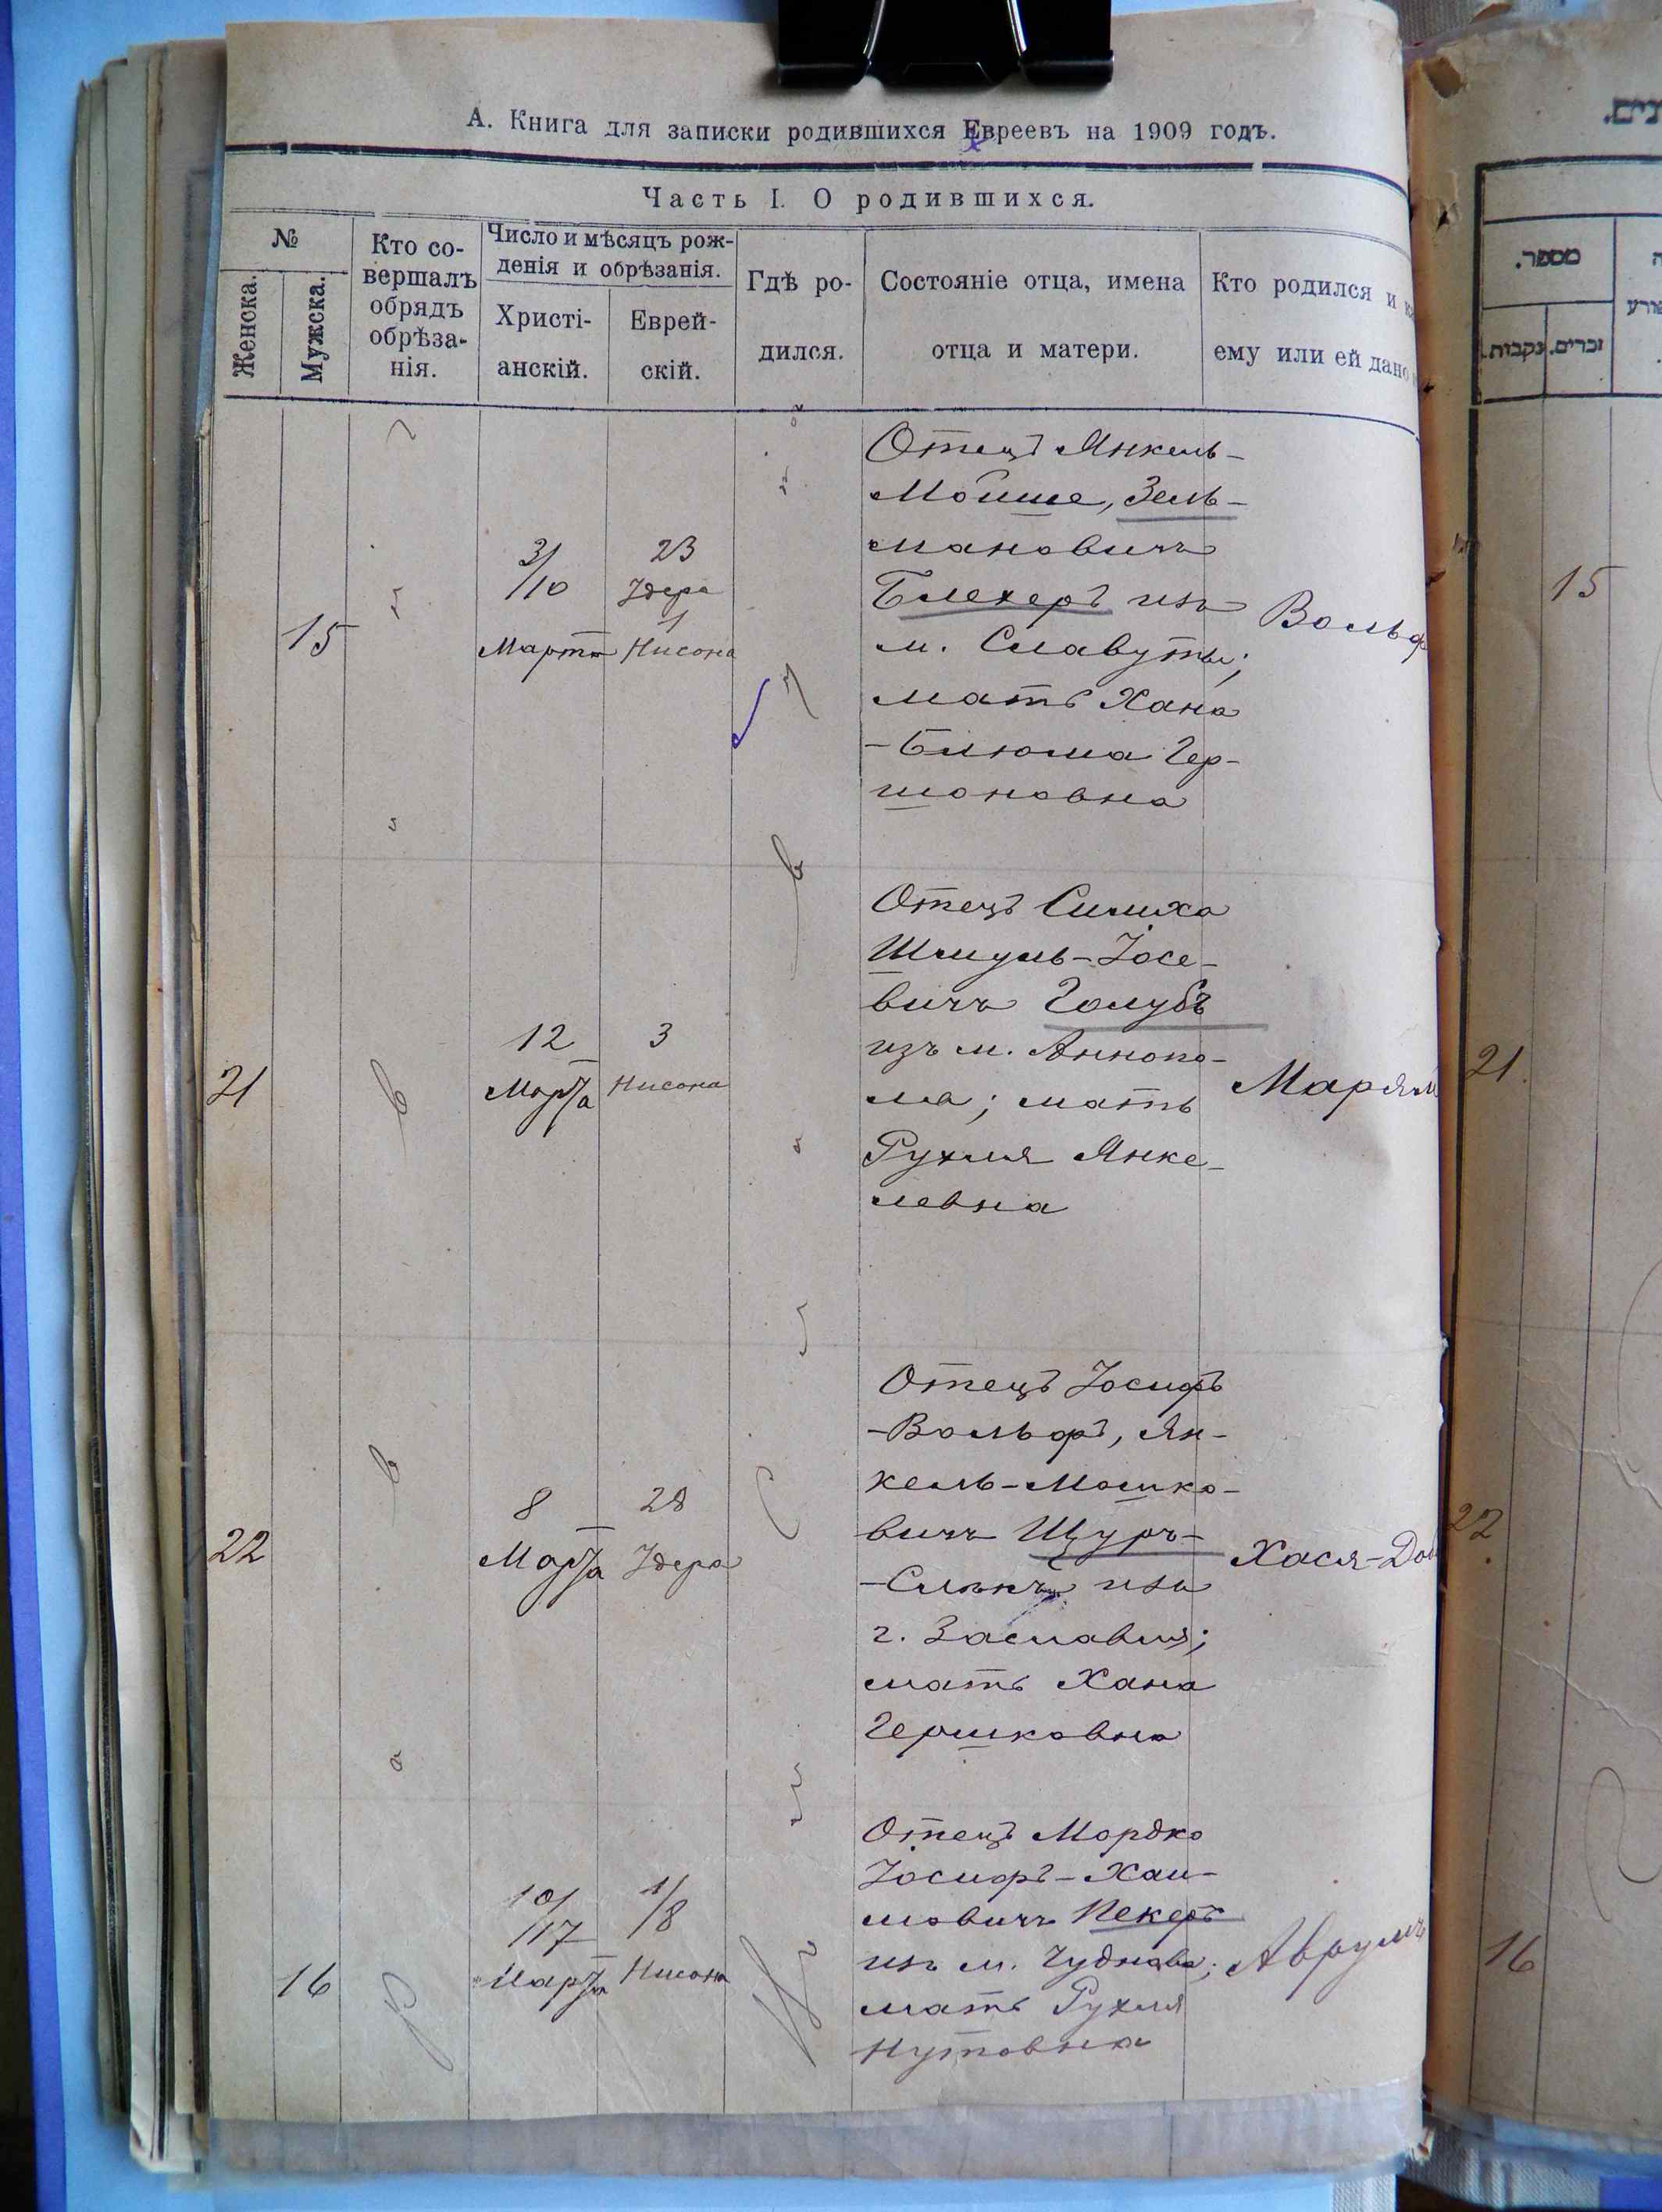 А. Книга для записки родившихся Евреевъ на 1909 годъ.
Часть I. О родившихся.
№
Женска.
Мужска.
Кто со-
вершалъ
обрядъ
обрѣза-
нія.
Число и мѣсяцъ рож-
денія и обрѣзанія.
Христі-
анскій.
Еврей-
скій.
Гдѣ ро-
дился.
Состояніе отца, имена
отца и матери.
Кто родился и
ему или ей дано
15
3/10
Марта
23
Адера
1
Нисона
Отецъ Янкель-
Мошше, Зель-
мановичъ
Блехеръ изъ
м. Славуты;
мать Хана
-Блюма Гер-
шоновна
Вольф
21
12
Марта
3
Нисона
Отецъ Симха
Шмуль-Іосе-
вичъ Голубъ
изъ м. Аннопо-
ла; мать
Рухля Янке-
левна
Марьям
22
8
Марта
28
Адера
Отецъ Іосифъ
-Вольфъ, Ян-
кель-Мошко-
вичъ Щуръ-
изъ
г. Заславля;
мать Хана
Гершковна
Хася-Доб
16
10/17
Марта
1/8
Нисона
Отецъ Мордко
Іосифъ-Хаи-
мовичъ Пекеръ
изъ м. Чуднова;
мать Рухля
Нутовна
Аврумъ
מספר.
נקבות.
זכרים.
15
21
22
16